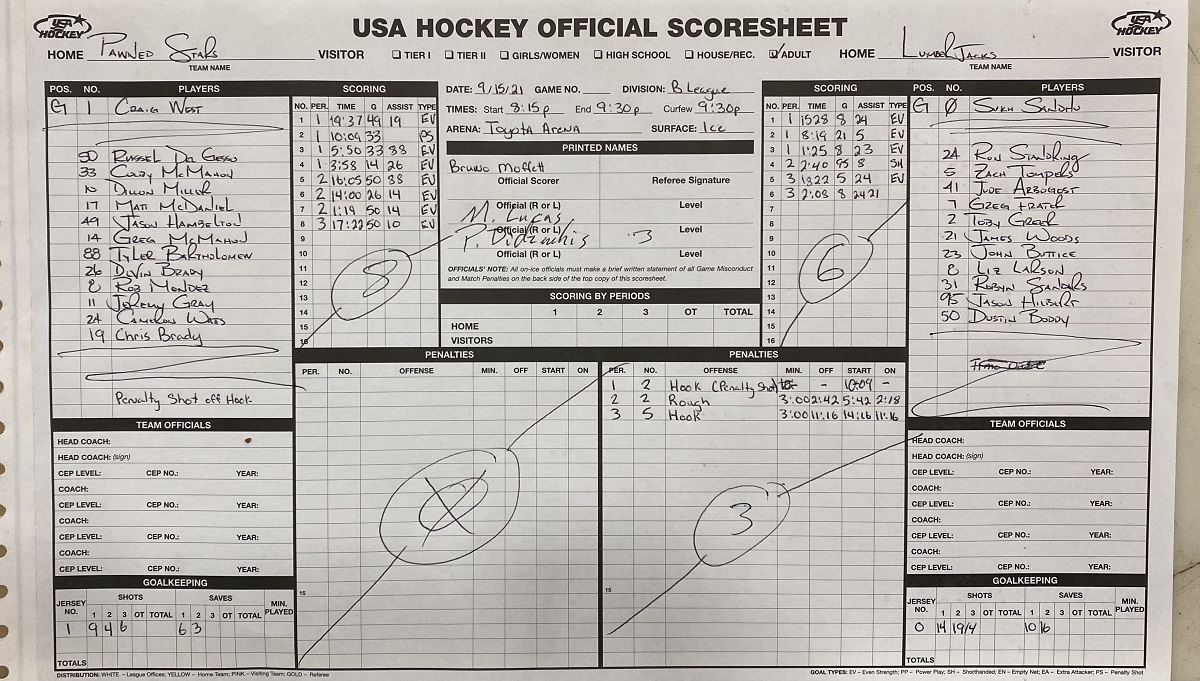 USA HOCKEY
USA HOCKEY OFFICIAL SCORESHEET
USA HOCKEY
HOME Pawned Stars VISITOR
TEAM NAME
TIER I TIER II GIRLS/WOMEN HIGH SCHOOL HOUSE/REC. ADULT
HOME LumberJacks VISITOR
TEAM NAME
POS. NO. PLAYERS
G 1 Craig West
50 Russel Del Gesso
33 Cody McMahon
10 Dillon Miller
17 Matt McDaniel
49 Jason Hambelton
14 Greg McMahon
88 Tyler Bartholomew
26 Devin Brady
8 Rob Mendez
11 Jeremy Gray
24 Cameron Watts
19 Chris Brady
Penalty Shot off Hook
SCORING
NO. PER. TIME G ASSIST TYPE
1 1 19:37 49 19 EV
2 1 10:09 33 PS
3 1 5:50 33 88 EV
4 1 3:58 14 26 EV
5 2 16:05 50 88 EV
6 2 14:00 26 14 EV
7 2 1:19 50 14 EV
8 3 17:22 50 10 EV
9
10
11
12
13
14
15
16
8
DATE: 9/15/21 GAME NO. DIVISION: B League
TIMES: Start 8:15p End 9:30p Curfew 9:30p
ARENA: Toyota Arena SURFACE: Ice
PRINTED NAMES
Bruno Moffett
Official Scorer Referee Signature
Official (R or L) Level
M. Lucas
Official (R or L) Level
3
Official (R or L) Level
OFFICIALS' NOTE: All on-ice officials must make a brief written statement of all Game Misconduct
and Match Penalties on the back side of the top copy of this scoresheet.
SCORING BY PERIODS
1 2 3 OT TOTAL
HOME
VISITORS
SCORING
NO. PER. TIME G ASSIST TYPE
1 1 1528 8 24 EV
2 1 8:19 21 5 EV
3 1 1:25 8 23 EV
4 2 2:40 95 8 SH
5 3 1322 5 24 EV
6 3 2:08 8 24 21
7
8
9
10
11
12
13
14
15
16
6
POS. NO. PLAYERS
G 0 Sukh Sandhu
24 Ron Standring
5 Zach Tompers
41 Jude Arbogost
7 Greg Frater
2 Toby Greer
21 James Woods
23 John Buttice
8 Liz Larson
31 Robyn Sanders
95 Jason Hilbert
50 Dustin Boddy
PENALTIES
PER. NO. OFFENSE MIN. OFF START ON
15
PENALTIES
PER. NO. OFFENSE MIN. OFF START ON
1 2 Hook (Penalty Shot) - 10:09 -
2 2 Rough 3:00 2:42 5:42 2:18
3 5 Hook 3:00 11:16 14:16 11:16
3
15
TEAM OFFICIALS
HEAD COACH:
HEAD COACH: (sign)
CEP LEVEL: CEP NO.: YEAR:
COACH:
CEP LEVEL: CEP NO.: YEAR:
COACH:
CEP LEVEL: CEP NO.: YEAR:
COACH:
CEP LEVEL: CEP NO.: YEAR:
GOALKEEPING
JERSEY NO. SHOTS 1 2 3 OT TOTAL SAVES 1 2 3 OT TOTAL MIN. PLAYED
1 9 4 6 6 3
TOTALS
TEAM OFFICIALS
HEAD COACH:
HEAD COACH: (sign)
CEP LEVEL: CEP NO.: YEAR:
COACH:
CEP LEVEL: CEP NO.: YEAR:
COACH:
CEP LEVEL: CEP NO.: YEAR:
COACH:
CEP LEVEL: CEP NO.: YEAR:
GOALKEEPING
JERSEY NO. SHOTS 1 2 3 OT TOTAL SAVES 1 2 3 OT TOTAL MIN. PLAYED
0 14 19 14 10 16
TOTALS
DISTRIBUTION: WHITE – League Offices; YELLOW – Home Team; PINK – Visiting Team; GOLD – Referee
GOAL TYPES: EV – Even Strength; PP – Power Play; SH – Shorthanded; EN – Empty Net; EA – Extra Attacker; PS – Penalty Shot